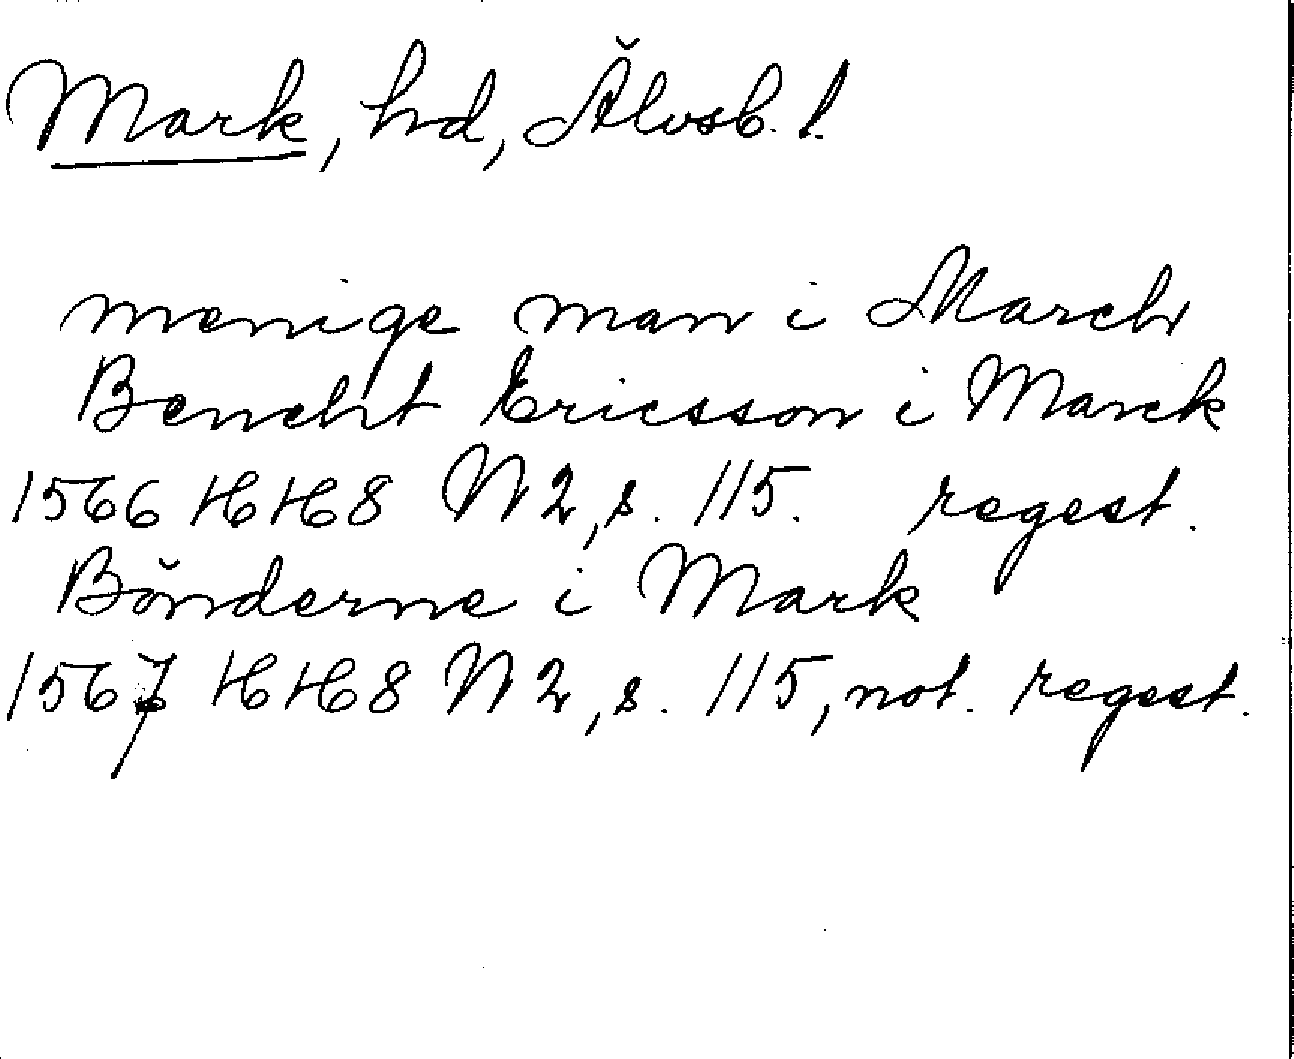 Mark, hd, Älvsb. l.
menige man i March
Bencht Ericsson i Marck
1566 HH8 N2, s. 115. regest.
Bönderne i Mark
1567 HH8 N2, s. 115, not. regest.